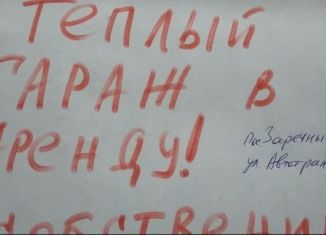 ТЕПЛЫЙ
ГАРАЖ В
АРЕНДУ!
пос. Заречный
ул. Автотран
СОБСТВЕННИ